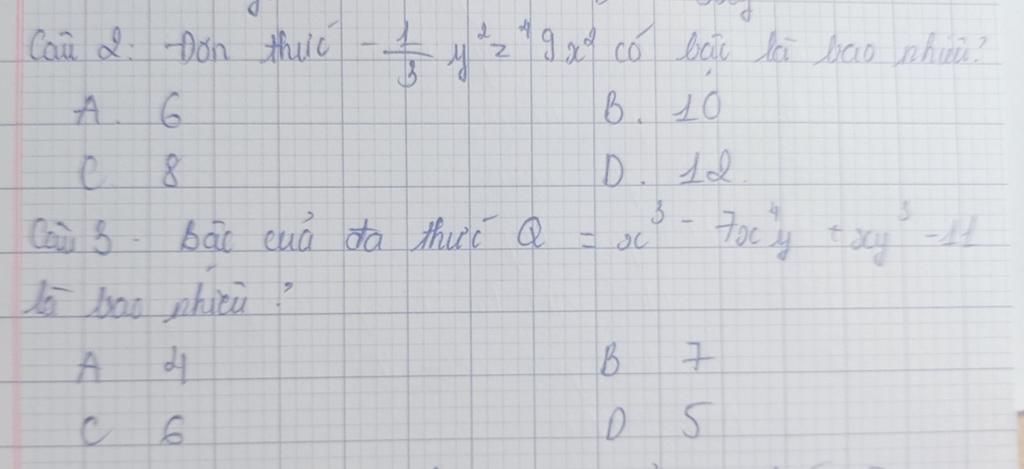 Câu 2: Đơn thức -1/3 y²z⁴ 9x² có bậc là bao nhiêu?
A. 6 B. 10
C 8 D. 12
Câu 3 - Bậc của đa thức Q = x³ - 7x⁴y + xy³ - 11
là bao nhiêu?
A 4 B 7
C 6 D 5